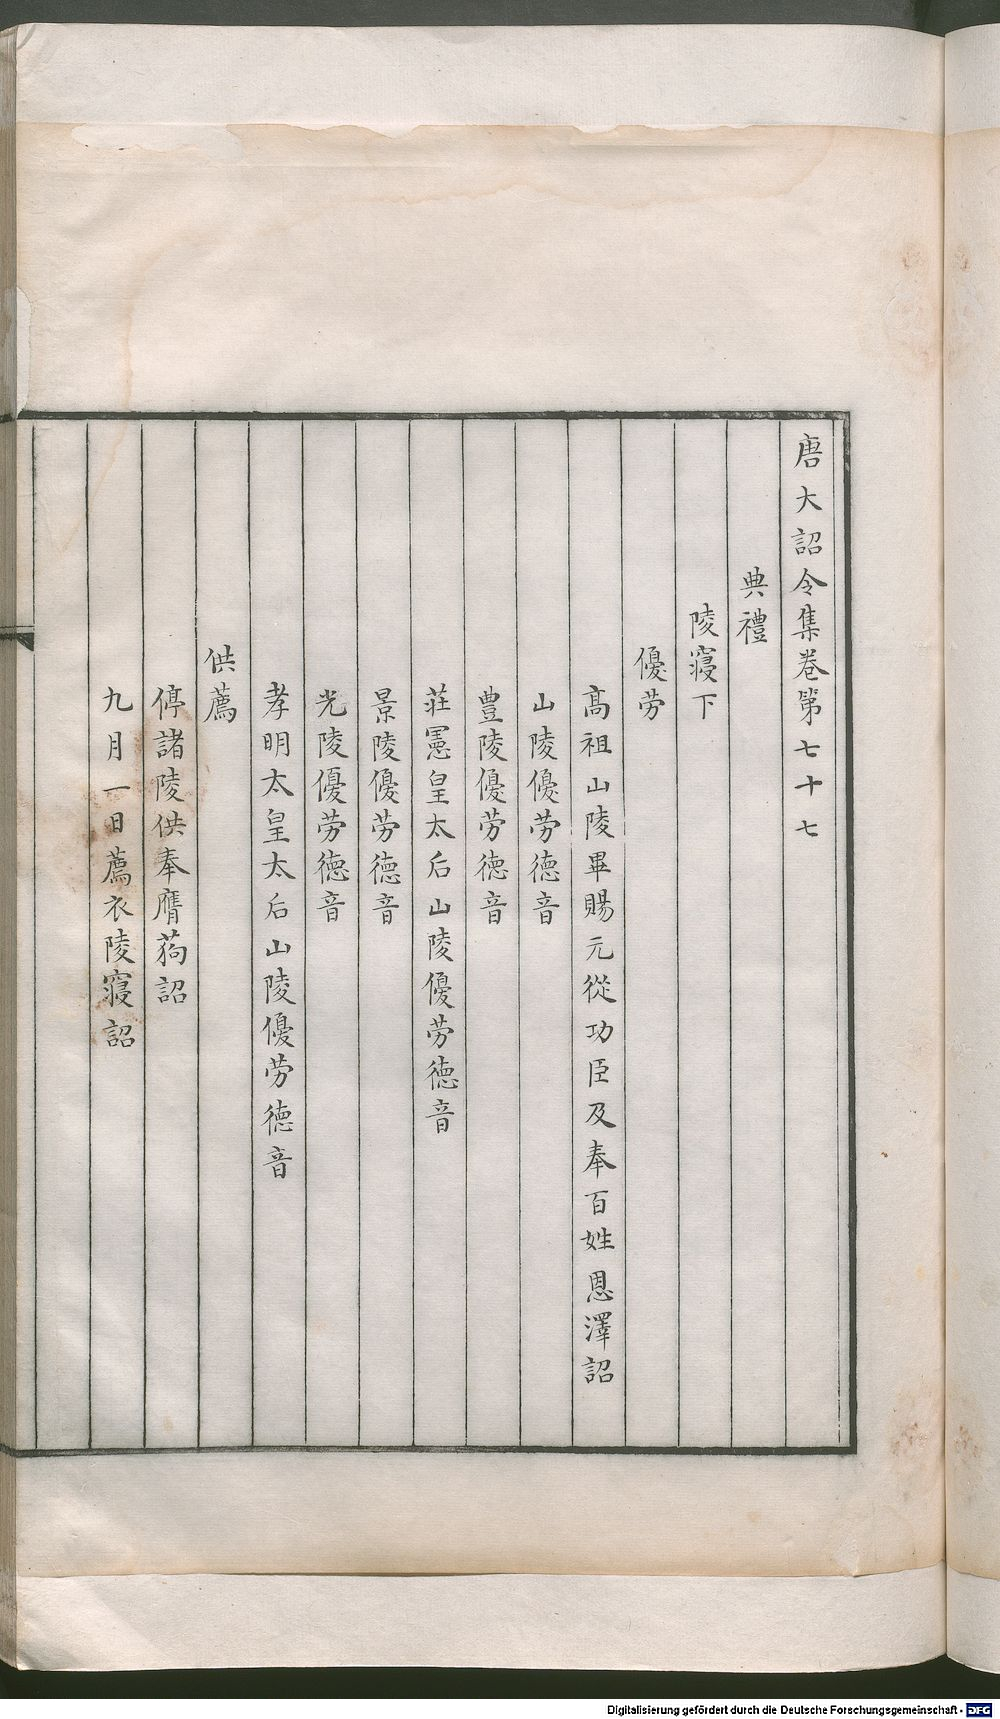 唐大詔令集卷第七十七
典禮
陵寢下
優劳
髙祖山陵畢賜元從功臣及奉百姓恩澤詔
山陵優劳德音
豊陵優劳德音
莊憲皇太后山陵優劳德音
景陵優劳德音
光陵優劳德音
孝明太皇太后山陵優劳德音
供薦
停諸陵供奉鷹狗詔
九月一日薦衣陵寢詔
Digitalisierung gefördert durch die Deutsche Forschungsgemeinschaft - DFG